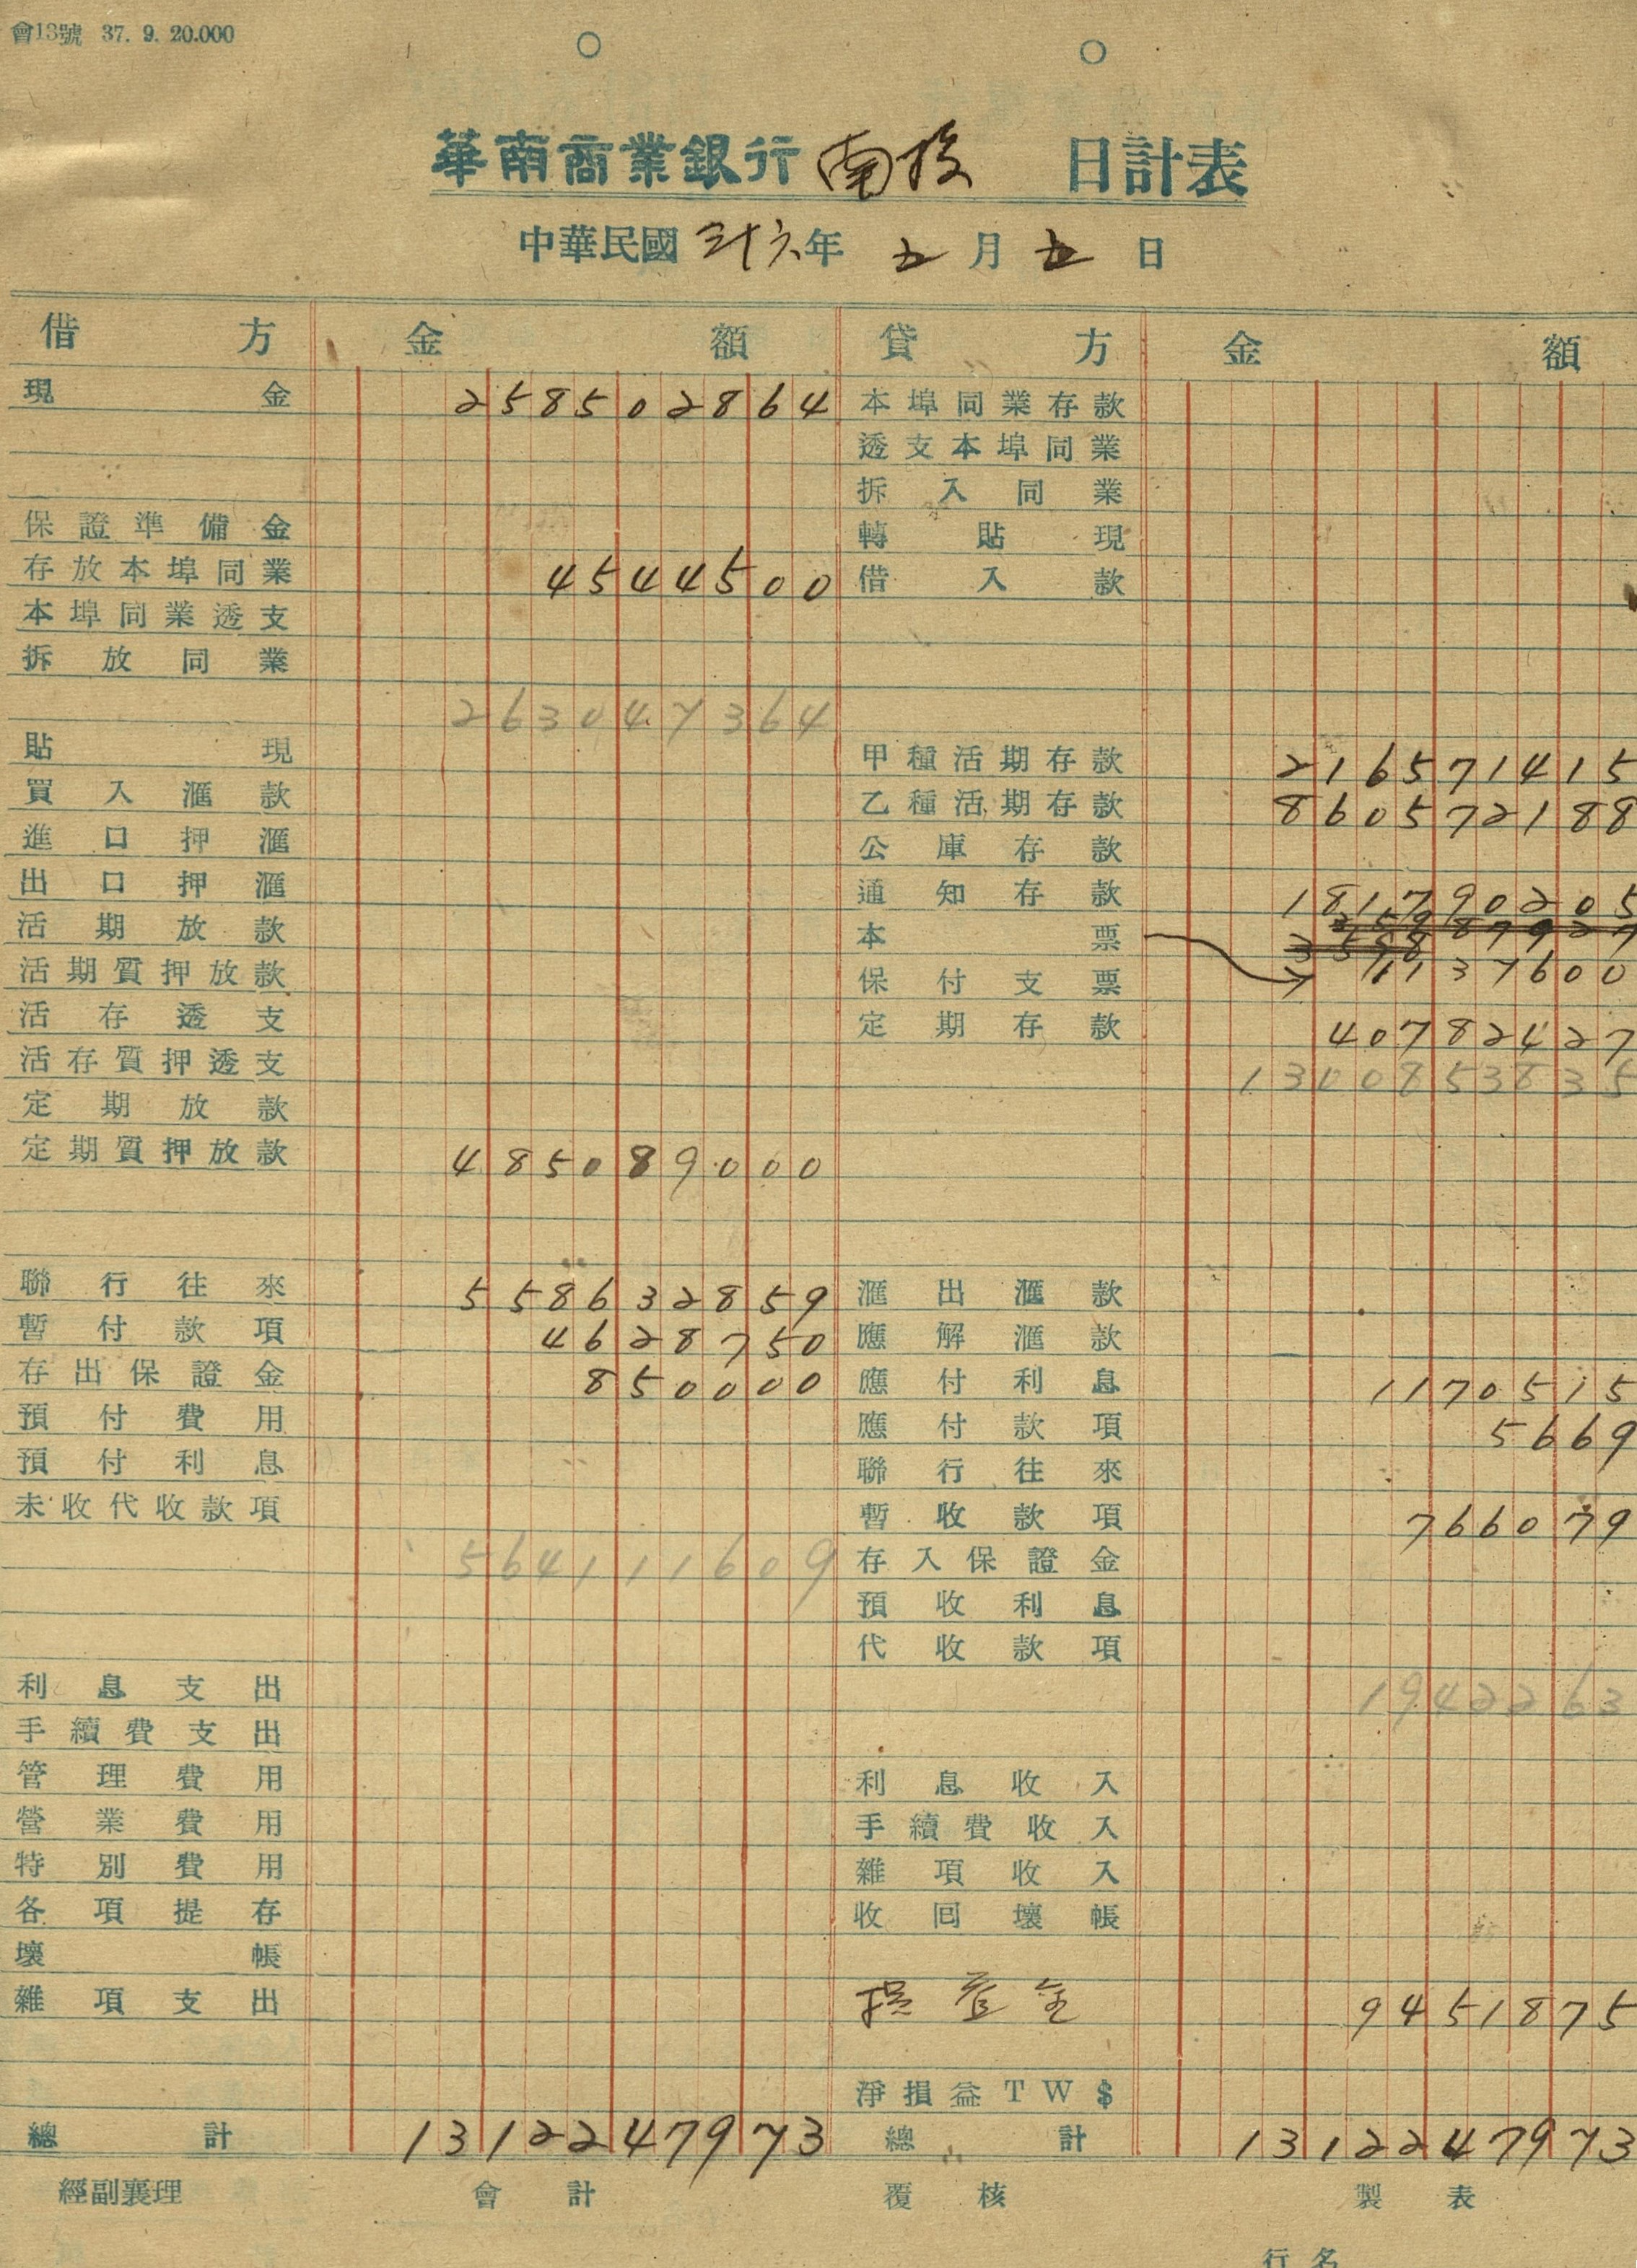 會13號 37. 9. 20.000
華南商業銀行 南投 日計表
中華民國 三十六年 五月五日
借方 金額 貸方 金額
現金 258502864 本埠同業存款
透支本埠同業
拆入同業
保證準備金 轉貼現
存放本埠同業 4544500 借入款
本埠同業透支
拆放同業
263047364
貼現 甲種活期存款 216571415
買入滙款 乙種活期存款 860572188
進口押滙 公庫存款
出口押滙 通知存款 181790205
活期放款 本票
活期質押放款 保付支票 1137600
活存透支 定期存款 40782427
活存質押透支 1300853835
定期放款
定期質押放款 485089000
聯行往來 558632859 滙出滙款
暫付款項 4628750 應解滙款
存出保證金 850000 應付利息 1170515
預付費用 應付款項 5669
預付利息 聯行往來
未收代收款項 暫收款項 766079
564111609 存入保證金
預收利息
代收款項
利息支出 1942263
手續費支出
管理費用 利息收入
營業費用 手續費收入
特別費用 雜項收入
各項提存 收回壞帳
壞帳
雜項支出 損益金 9451875
淨損益TW$
總計 1312247973 總計 1312247973
經副襄理 會計 覆核 製表
行名